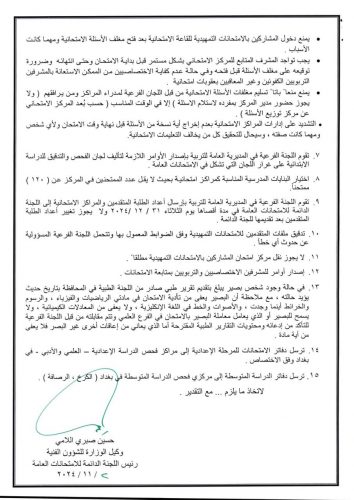 • يمنع دخول المشاركين بالامتحانات التمهيدية للقاعة الامتحانية بعد فتح مغلف الأسئلة الامتحانية ومهما كانت
الأسباب .
• يجب تواجد المشرف المتابع للمركز الامتحاني بشكل مستمر قبل بداية الامتحان وحتى انتهائه وضرورة
توقيعه على مغلف الأسئلة قبل فتحه وفي حالة عدم كفاية الاختصاصيين من الممكن الاستعانة بالمشرفين
التربويين الكفوئين وغير المعاقبين بعقوبات امتحانية
• يمنع منعاً باتاً تسليم مغلفات الأسئلة الامتحانية من قبل اللجان الفرعية لمدراء المراكز ومن يرافقهم ( ولا
يجوز حضور مدير المركز بمفرده لاستلام الاسئلة ) إلا في الوقت المناسب ( حسب بُعد المركز الامتحاني
عن مركز توزيع الأسئلة ) .
• التشديد على إدارات المراكز الامتحانية بعدم إخراج أية نسخة من الأسئلة قبل نهاية وقت الامتحان ولأي شخص
مهما كانت صفته ، وسيحال للتحقيق كل من يخالف التعليمات الامتحانية.
٧. تقوم اللجنة الفرعية في المديرية العامة للتربية بإصدار الأوامر اللازمة لتأليف لجان الفحص والتدقيق للدراسة
الابتدائية على غرار اللجان التي تشكل في الامتحانات العامة .
٨. اختيار البنايات المدرسية المناسبة كمراكز امتحانية بحيث لا يقل عدد الممتحنين في المركز عن ( ١٢٠ )
ممتحناً.
٩. تقوم اللجنة الفرعية في المديرية العامة للتربية بإرسال أعداد الطلبة المتقدمين والمراكز الامتحانية إلى اللجنة
الدائمة للامتحانات العامة في مدة أقصاها يوم الثلاثاء ٣١ / ١٢ / ٢٠٢٤ ولا يجوز تغيير أعداد الطلبة
المتقدمين بعد تقديمها للجنة الدائمة .
١٠. تدقيق ملفات المتقدمين للامتحانات التمهيدية وفق الضوابط المعمول بها وتتحمل اللجنة الفرعية المسؤولية
عن حدوث أي خطأ .
١١. لا يجوز نقل مركز امتحان بالامتحانات التمهيدية مطلقاً .
١٢. إصدار أوامر للمشرفين الاختصاصيين والتربويين بمتابعة الامتحانات .
١٣. في حالة وجود شخص بصير يبلغ بتقديم تقرير طبي صادر من اللجنة الطبية في المحافظة بتاريخ حديث
يؤيد حالته ، مع ملاحظة أن البصير يعفى من تأدية الامتحان في مادتي الرياضيات والفيزياء ، والرسوم
والخرائط أينما وجدت ، والأصوات والخط في اللغة الإنكليزية ، ولا يعفى من المعادلات الكيميائية ، ولا
يسمح للبصير أو الذي يعامل معاملة البصير بالامتحان في الفرع العلمي وتتم مقابلته من قبل اللجنة الفرعية
للتأكد من إدعائه ومحتويات التقارير الطبية المقترحة أما الذي يعاني من إعاقات أخرى غير البصر فلا يعفى
من أية مادة .
١٤. ترسل دفاتر الامتحانات للمرحلة الإعدادية إلى مراكز فحص الدراسة الإعدادية – العلمي والأدبي – في
بغداد وفق الاختصاص .
١٥. ترسل دفاتر الدراسة المتوسطة إلى مركزي فحص الدراسة المتوسطة في بغداد ( الكرخ ، الرصافة ) .
لاتخاذ ما يلزم ... مع التقدير .
حسين صبري اللامي
وكيل الوزارة للشؤون الفنية
رئيس اللجنة الدائمة للامتحانات العامة
٢٠٢٤ / ١١ /